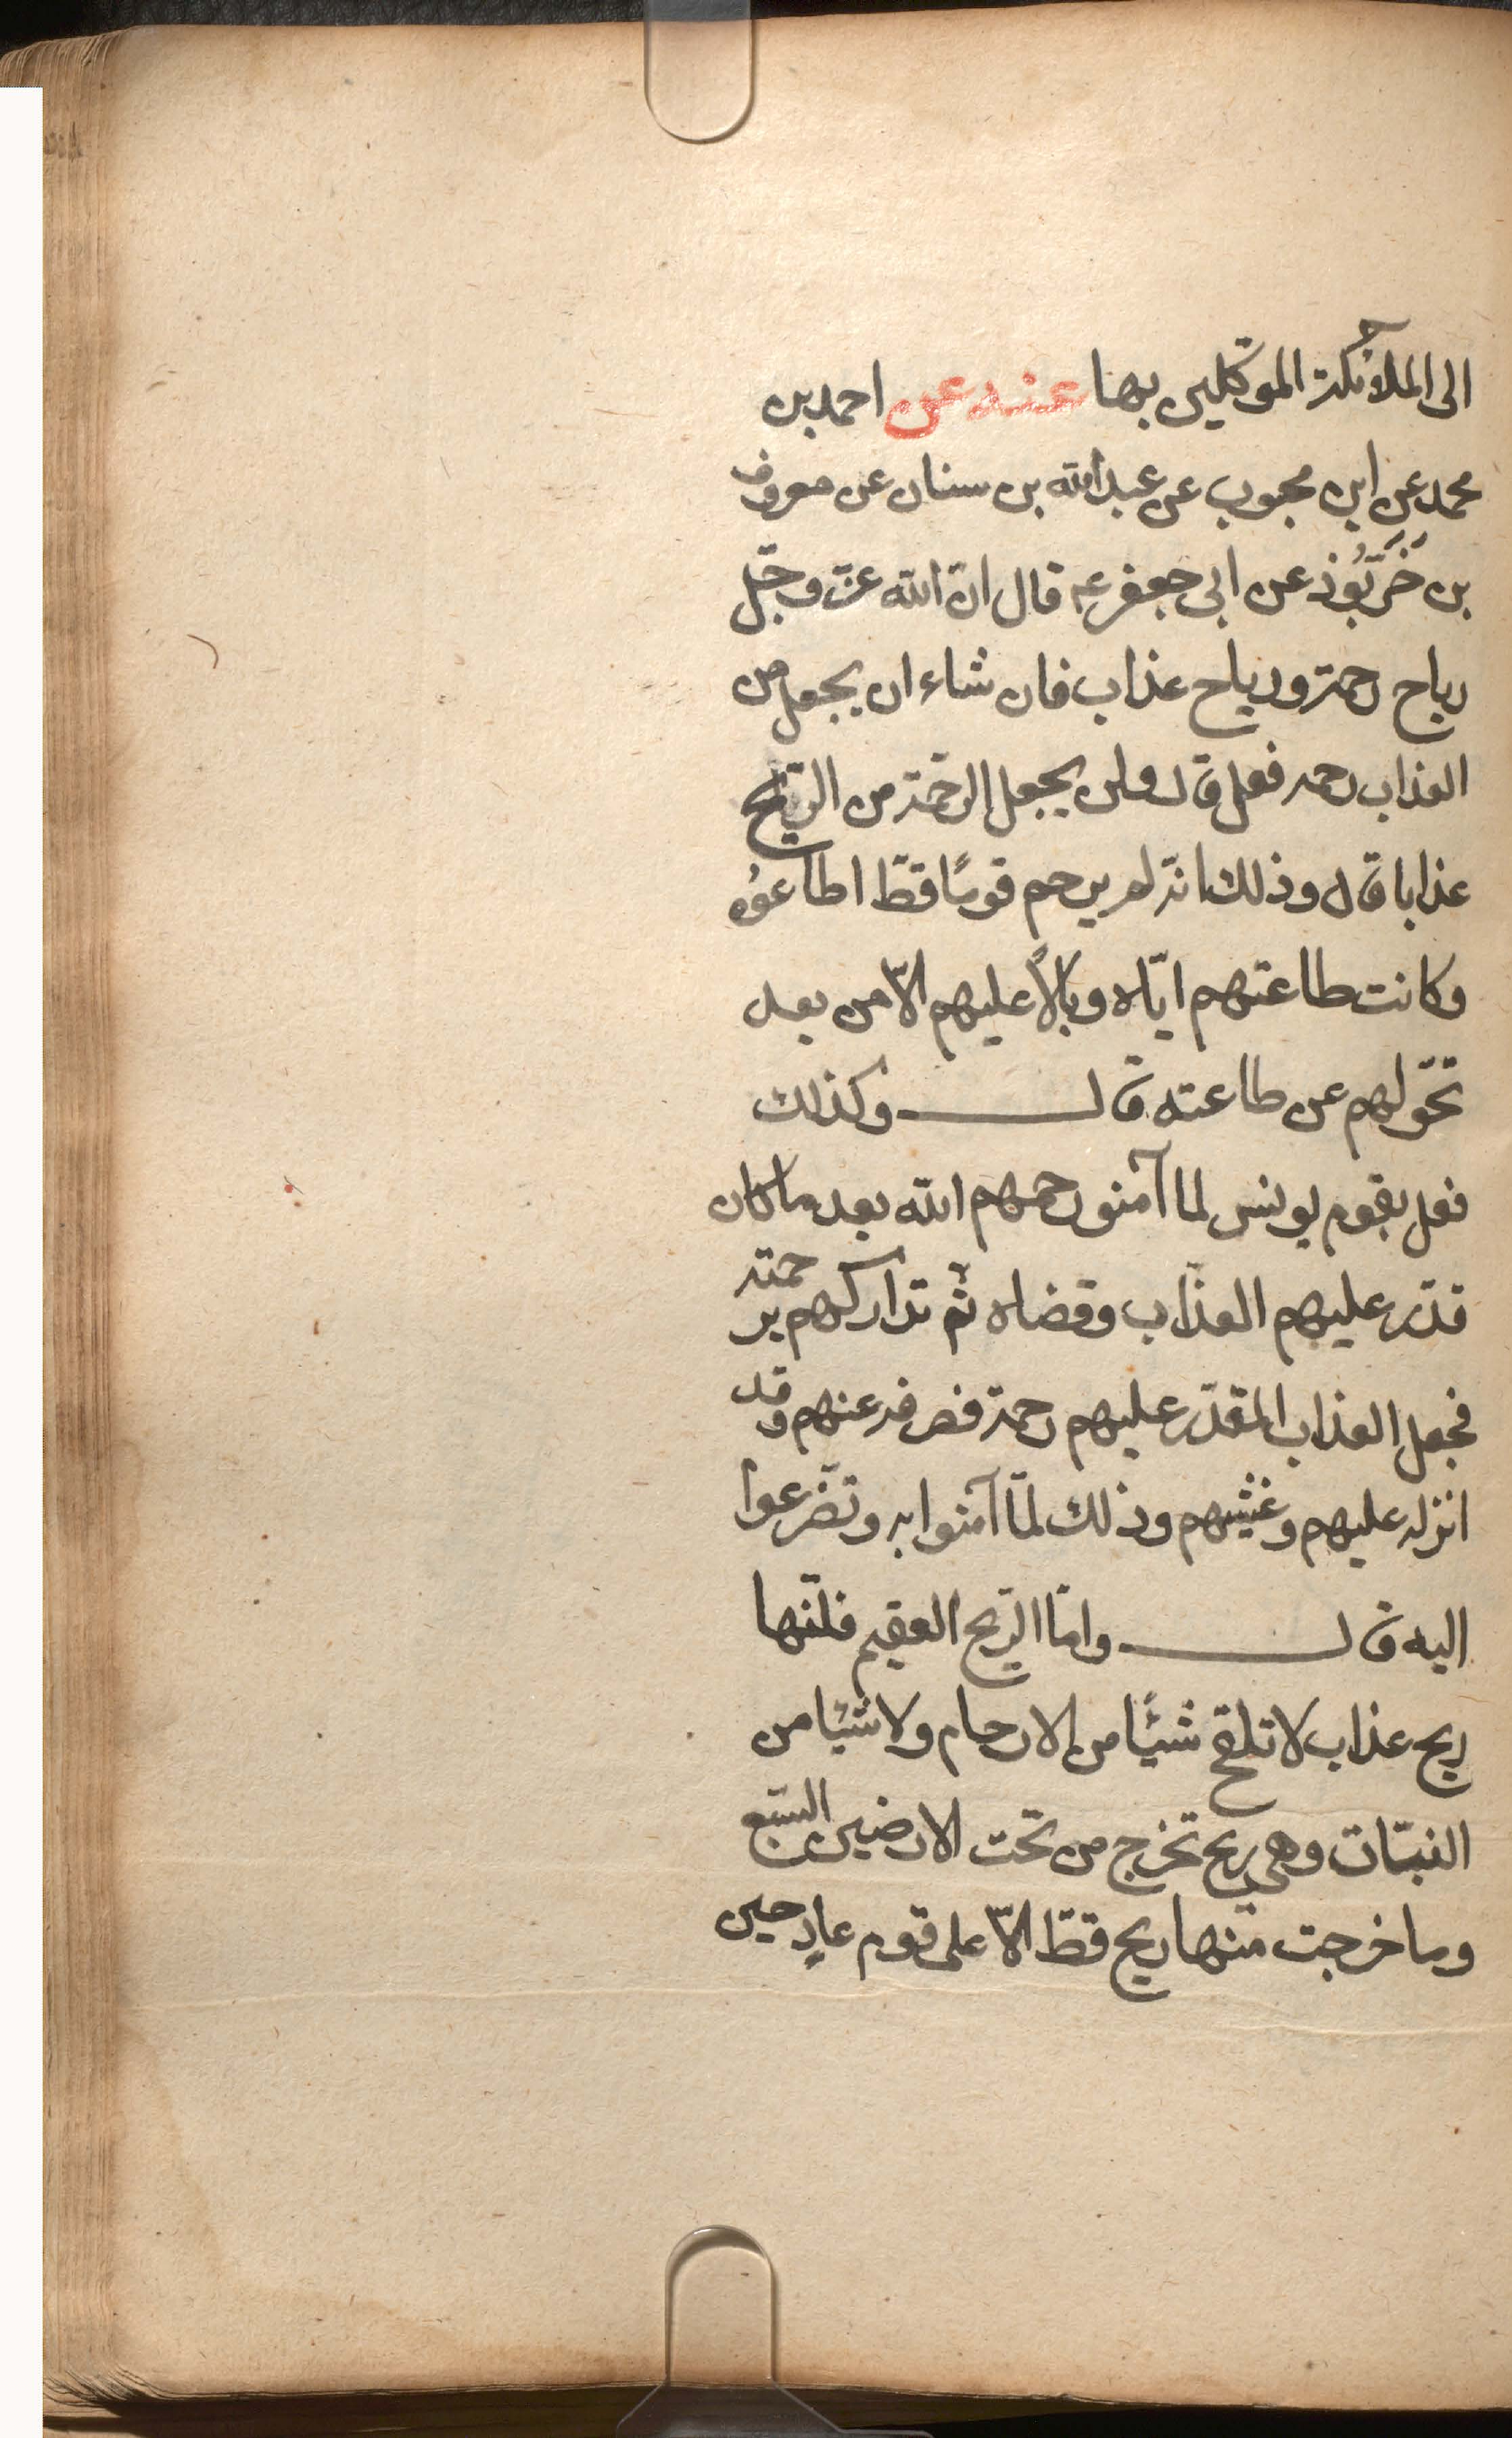 الى الملائكة الموكلين بها عنه عن احمد بن
محمد عن ابن محبوب عن عبد الله بن سنان عن معروف
بن خَرَّبُوذ عن ابى جعفر عم قال انّ الله عزّ وجّل
رياح رحمة ورياح عذاب فان شاء ان يجعل من
العذاب رحمه فعل قال ولن يجعل الرحمة من الرّيح
عذابا قال وذلك انّه لم يرحم قومًا قطّ اطاعوُه
وكانت طاعتهم ايّاه وبالاً عليهم الاّ من بعد
تحوّلهم عن طاعته قال وكذلك
فعل بقوم يونس لما آمنو رحمهم الله بعد ما كان
قدّر عليهم العذاب وقضاه ثمّ تداركهم برحمته
فجعل العذاب المقدّر عليهم رحمة فصرفه عنهم وقد
انزله عليهم وغشيهم وذلك لمّا آمنوا به وتضّرعوا
اليه قال وامّا الرّيح العقيم فانّها
ريح عذاب لا تلقح شيئًا من الارحام ولا شيئا من
النبّات وهى ريح تخرج من تحت الارضين السّبع
وما خرجت منها ريح قطّ الاّ على قوم عادٍ حين